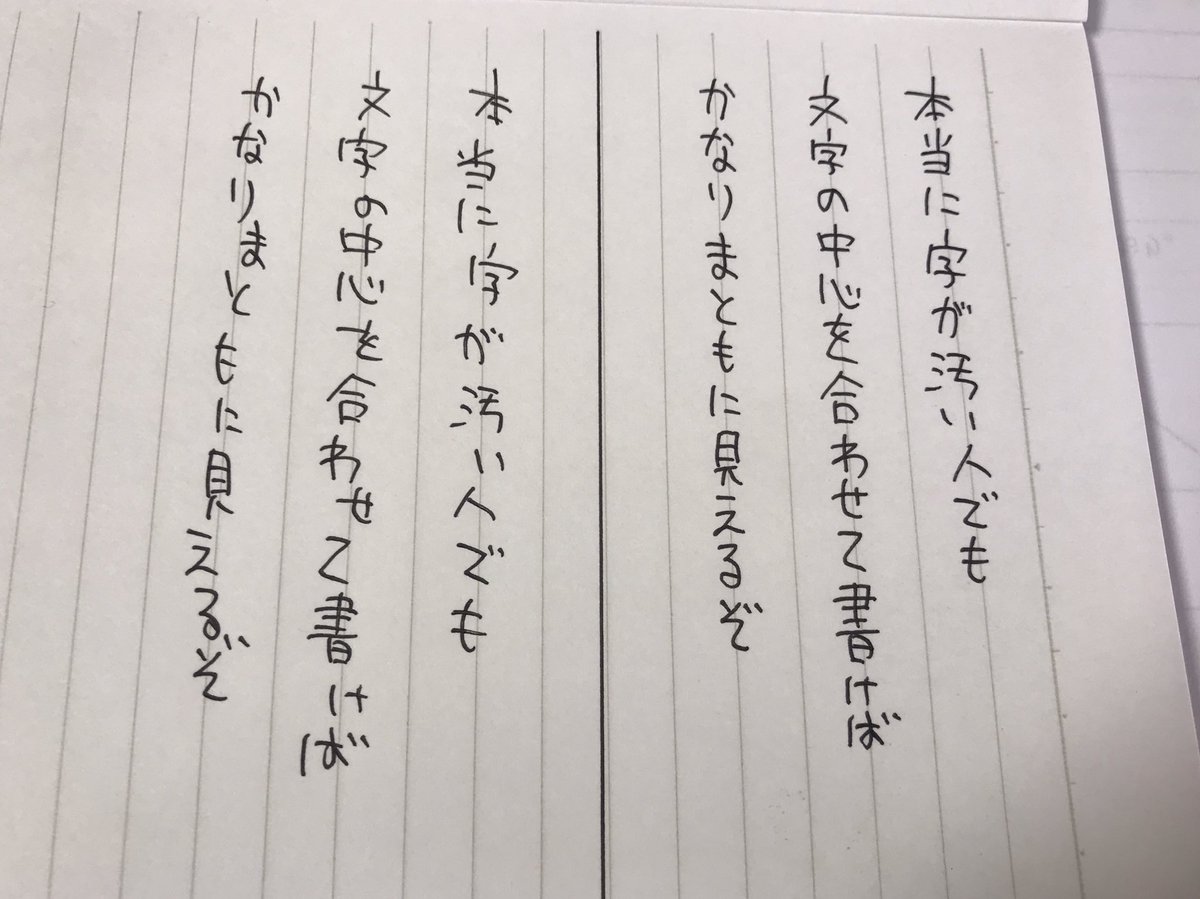 本当に字が汚い人でも
文字の中心を合わせて書けば
かなりまともに見えるぞ
本当に字が汚い人でも
文字の中心を合わせて書けば
かなりまともに見えるぞ